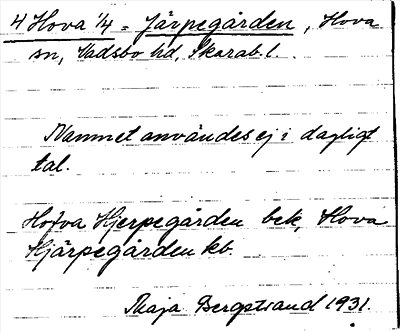 4 Hova 1/4 = Järpegården, Hova
sn, Vadsbo hd, Skarab. l.
Namnet användes ej i dagligt
tal.
Hofva Hjerpegården bek, Hova
Hjärpegården kb.
Maja Bergstrand 1931.